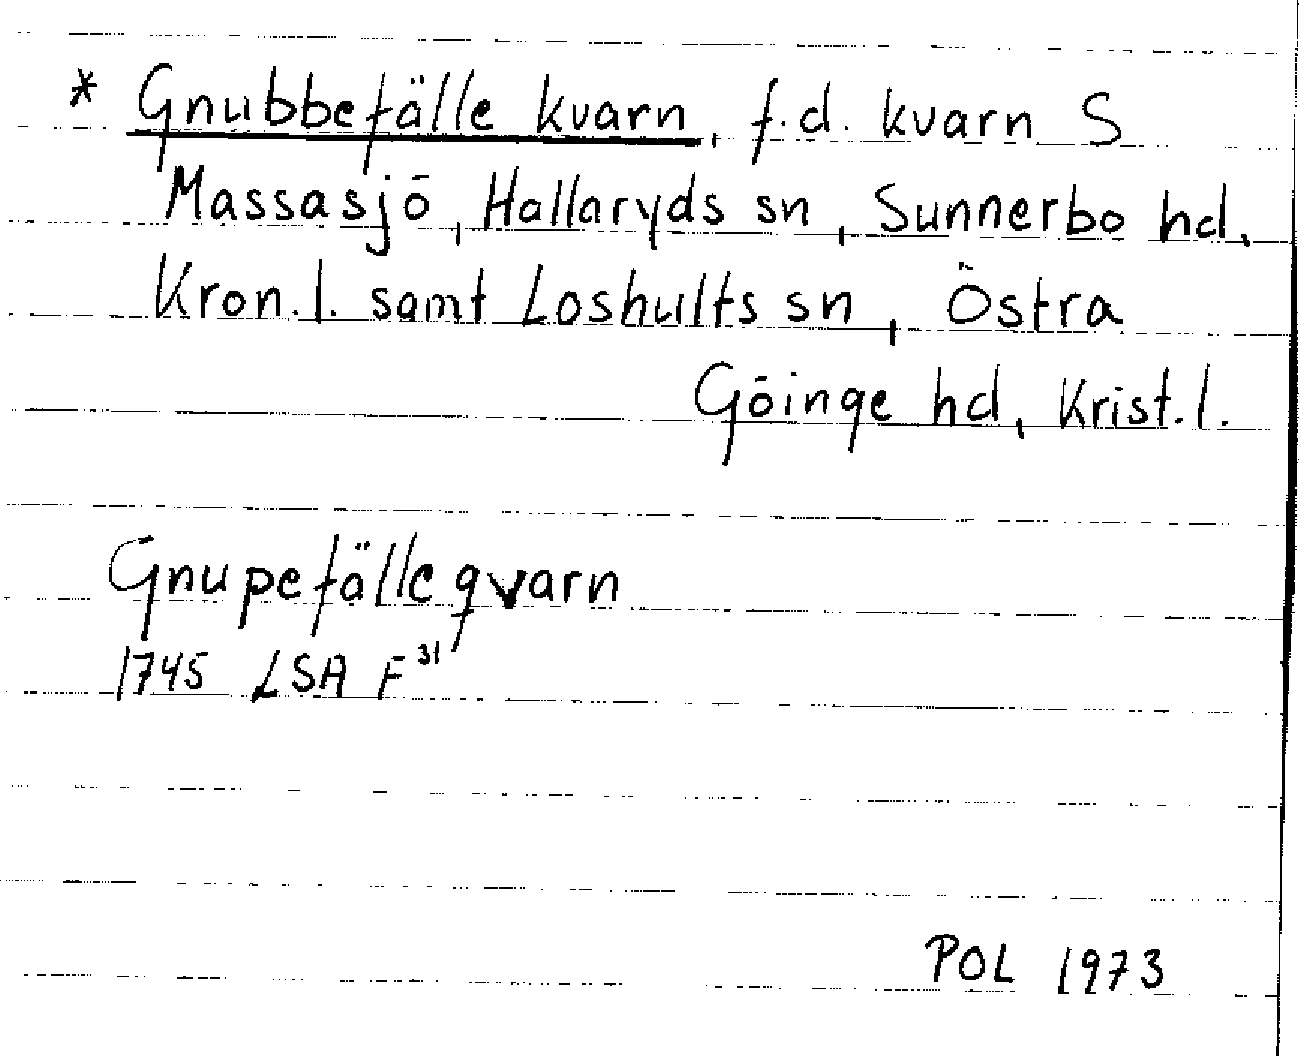 * Gnubbefälle kvarn, f.d. kvarn S
Massasjö, Hallaryds sn, Sunnerbo hd,
Kron.l. samt Loshults sn, Östra
Göinge hd, Krist.l.
Gnupefälle qvarn
1745 LSA F³¹
POL 1973